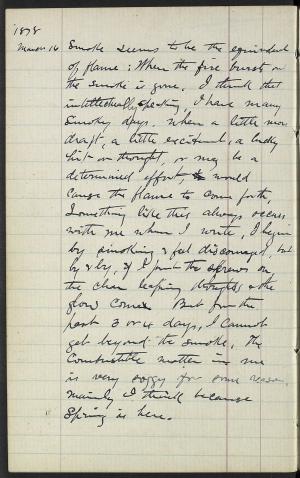 1878
March 16 Smoke seems to be the equivalent
of flame: When the fire bursts on
the smoke is gone. I think that
intellectually speaking, I have many
smoky days. When a little more
draft, a little excitement, a lucky
hit on thought, or may be a
determined effort, would
cause the flame to come forth,
Something like this always occurs
with me when I write, I begin
by smoking & feel discouraged, but
by & by, if I put the screws on,
the clear leaping thoughts & the
glow comes. But for the
past 3 or 4 days, I cannot
get beyond the smoke, the
combustible matter in me
is very soggy for some reason,
mainly I think because
Spring is here.